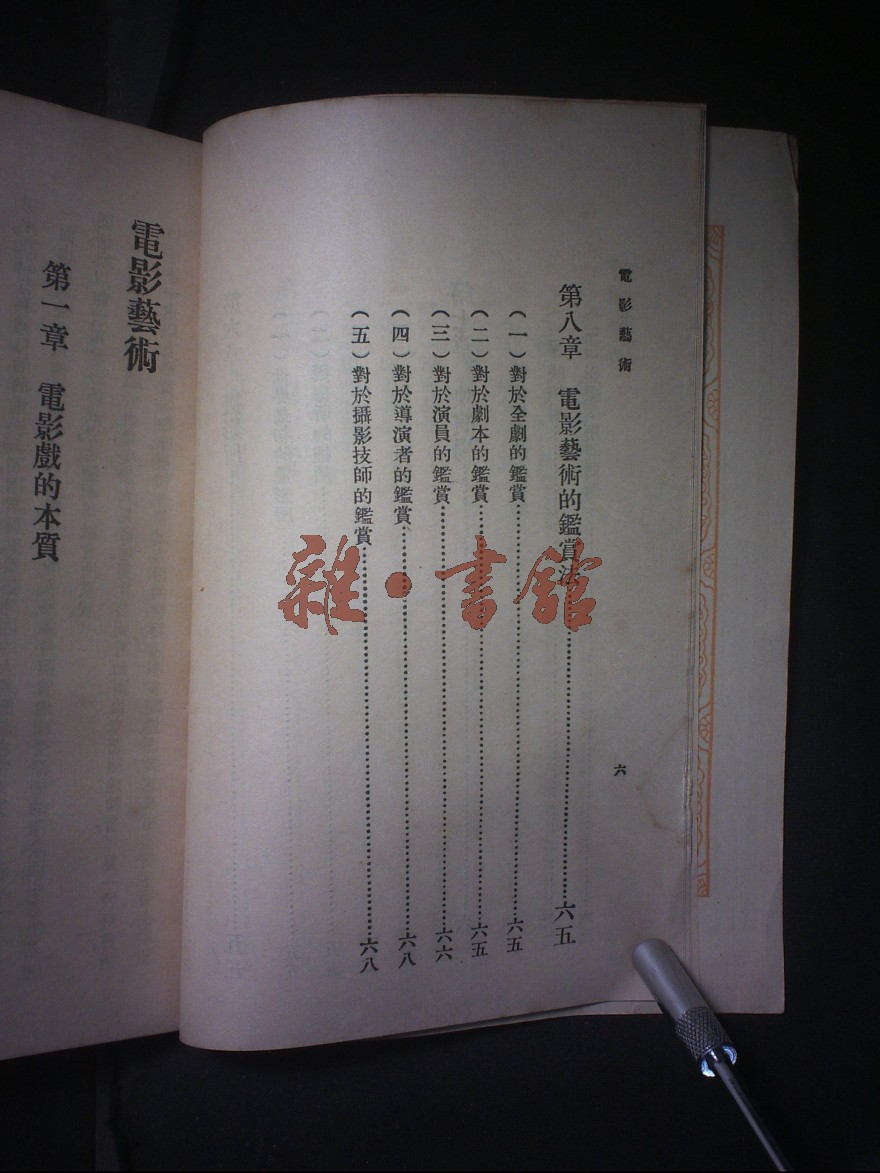 電影藝術
六
第八章　電影藝術的鑑賞法……六五
（一）對於全劇的鑑賞……六五
（二）對於劇本的鑑賞……六五
（三）對於演員的鑑賞……六六
（四）對於導演者的鑑賞……六八
（五）對於攝影技師的鑑賞……六八
電影藝術
第一章　電影戲的本質
雜·書館